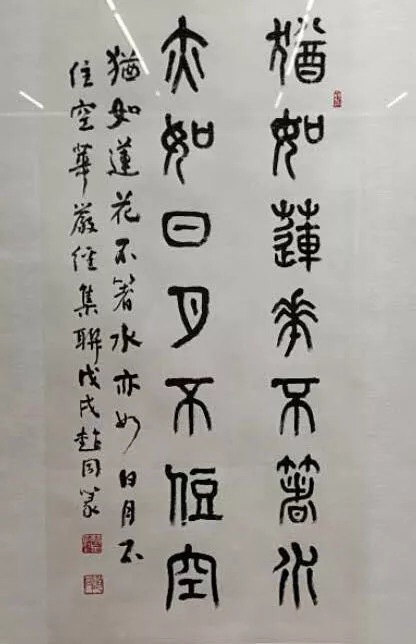 猶如蓮華不著水
亦如日月不住空
猶如蓮花不著水亦如日月不
住空華嚴經集聯戊戌赵同篆